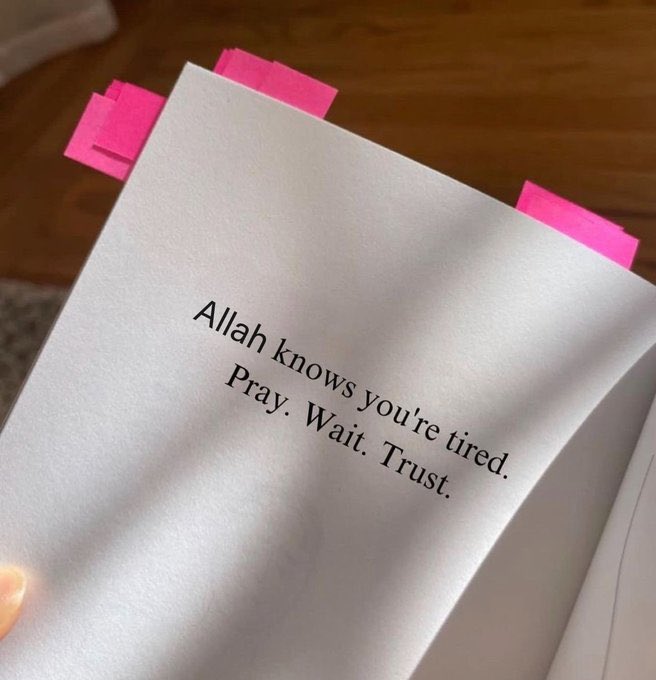 Allah knows you're tired.
Pray. Wait. Trust.